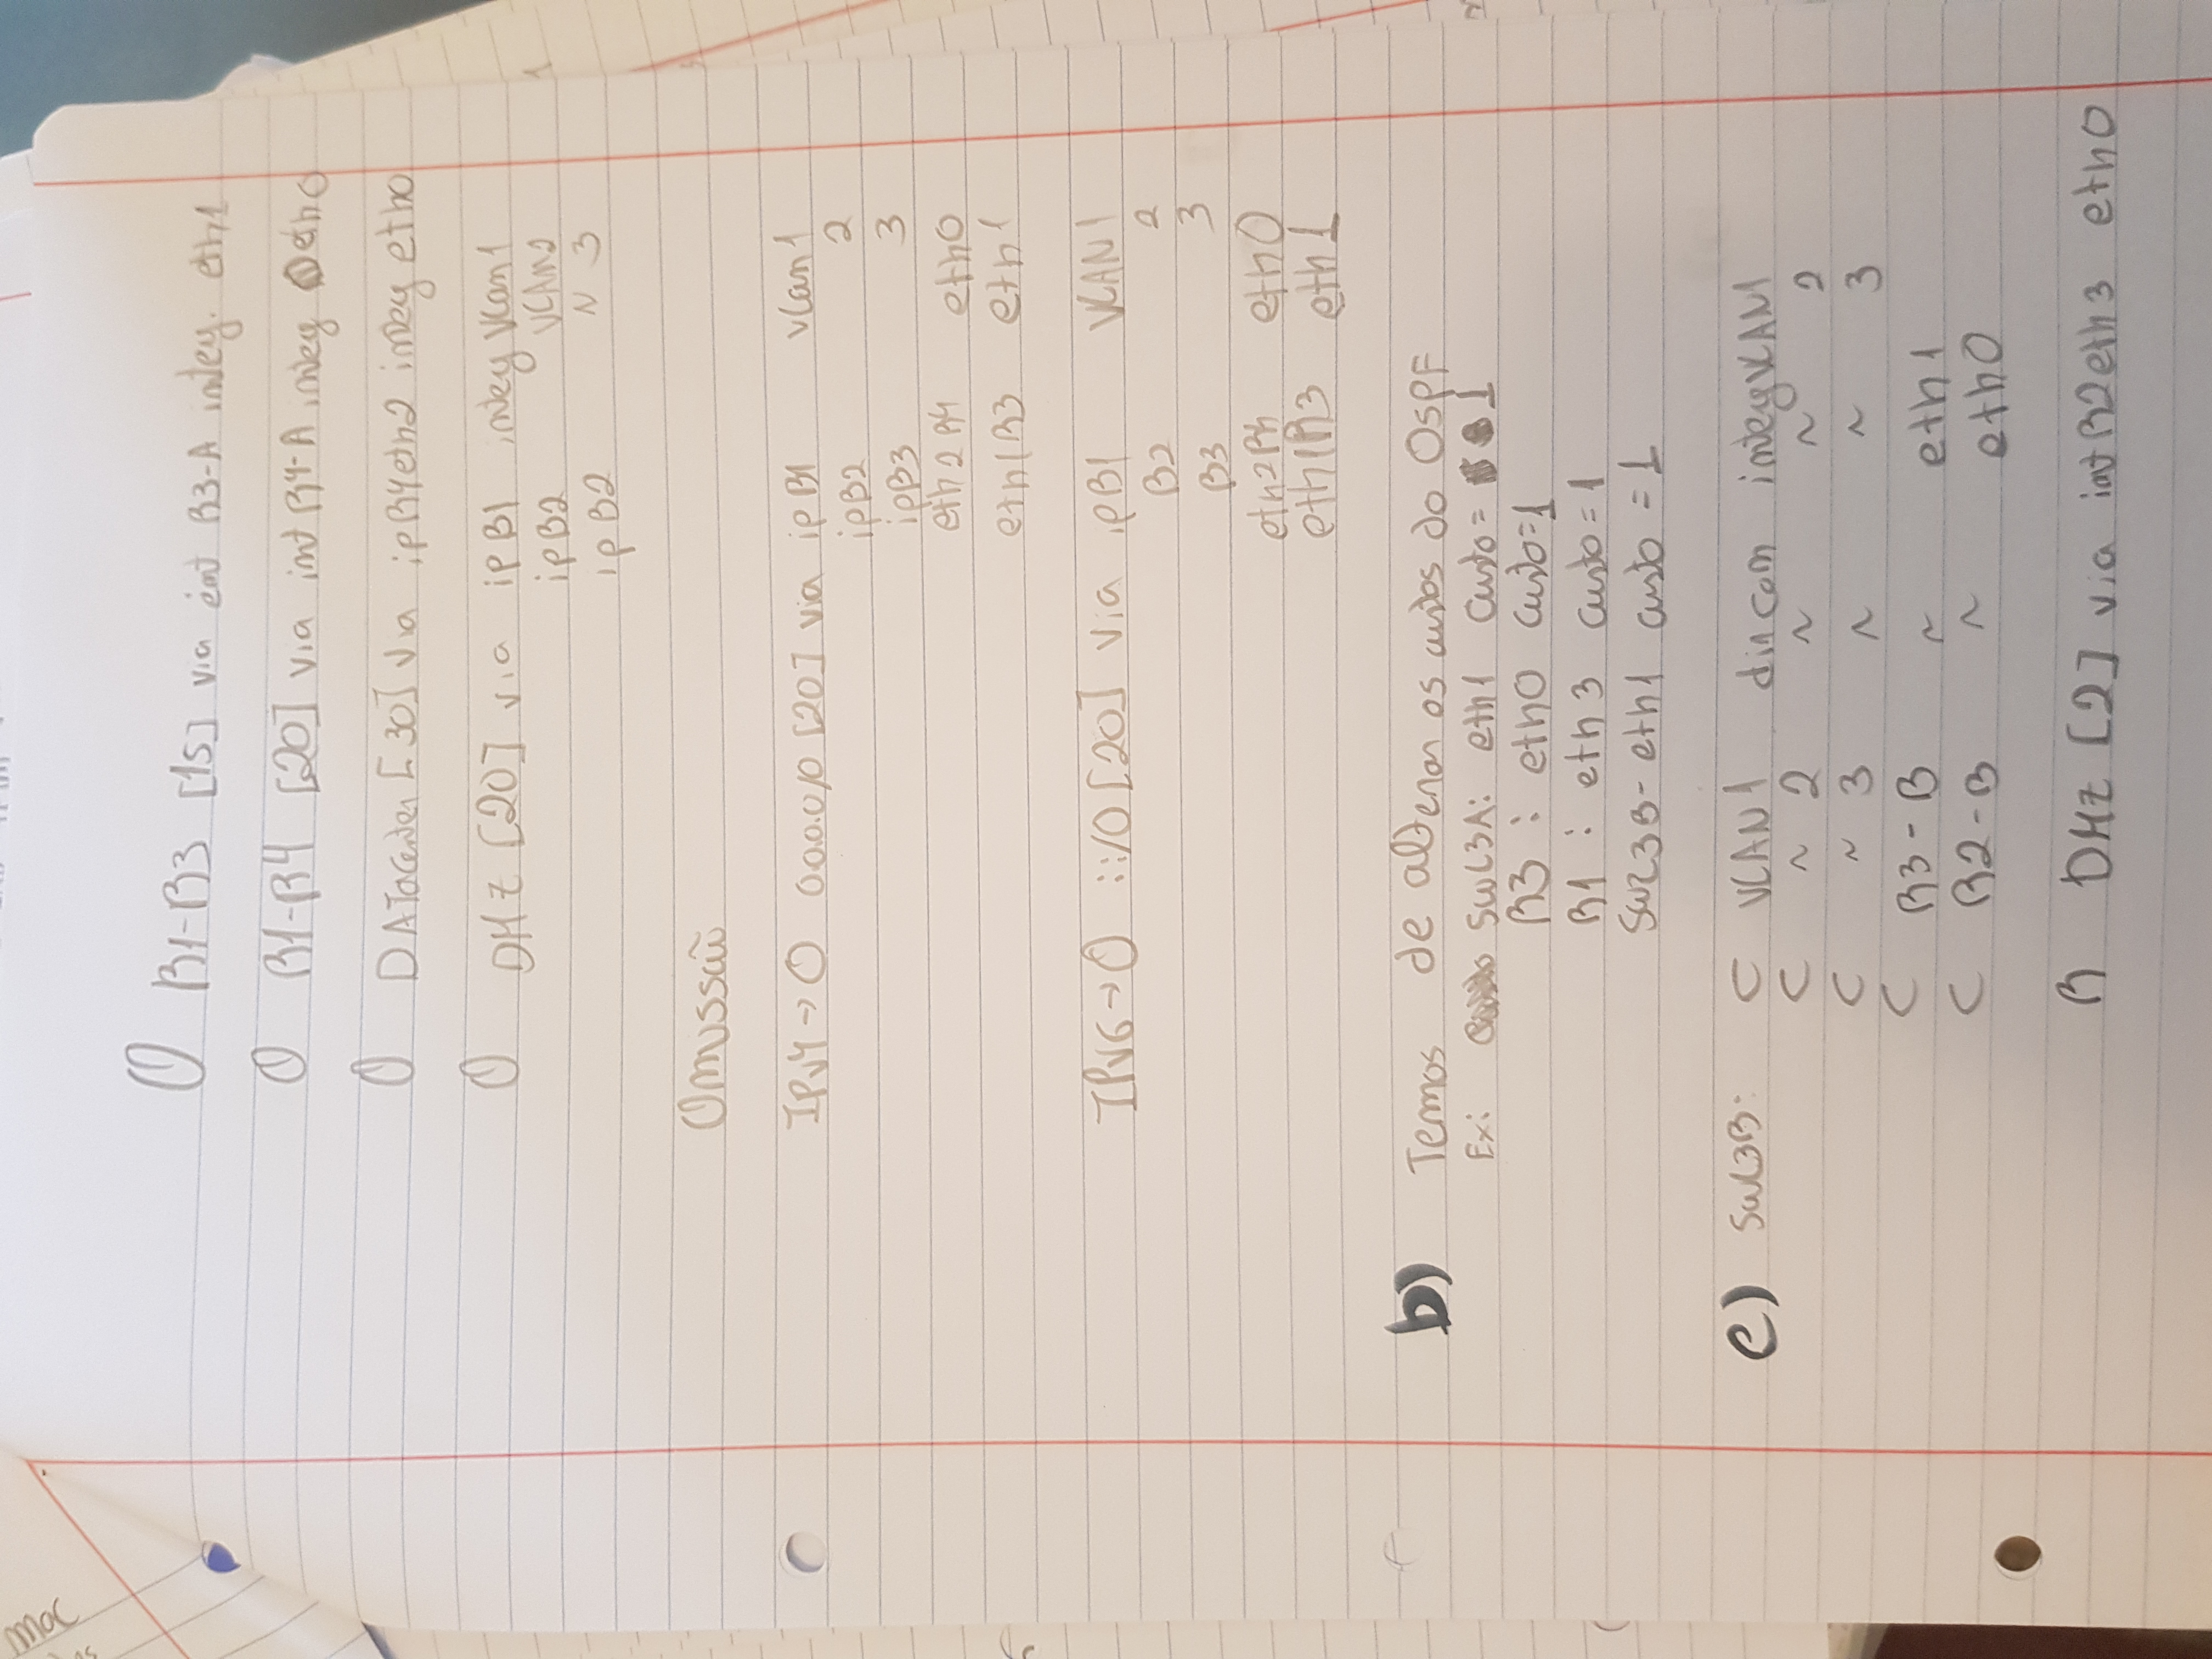 MAC
O R1-R3 [15] via int R3-A interf. eth1
O R1-R4 [20] via int R4-A interf eth0
O DATAcenter [30] via ipR4eth2 interf eth0
O DMZ [20] via ipB1 interf Vlan1
ipB2 VLAN2
ipB2 ~ 3
Omissão
IPv4 → O 0.0.0.0/0 [20] via ipB1 vlan1
ipB2 2
ipB3 3
eth2R4 eth0
eth1R3 eth1
IPv6 → O ::/0 [20] via ipB1 VLAN1
B2 2
B3 3
eth2R4 eth0
eth1R3 eth1
b) Temos de alterar os custos do OSPF
Ex: SWL3A: eth1 custo = 1
R3 : eth0 custo=1
R1 : eth3 custo = 1
SWL3B - eth1 custo = 1
c) SWL3B: C VLAN1 dir com interfVLAN1
C ~ 2 ~ ~ 2
C ~ 3 ~ ~ 3
C R3-B ~ eth1
C R2-B ~ eth0
R DMZ [2] via int R2eth3 eth0